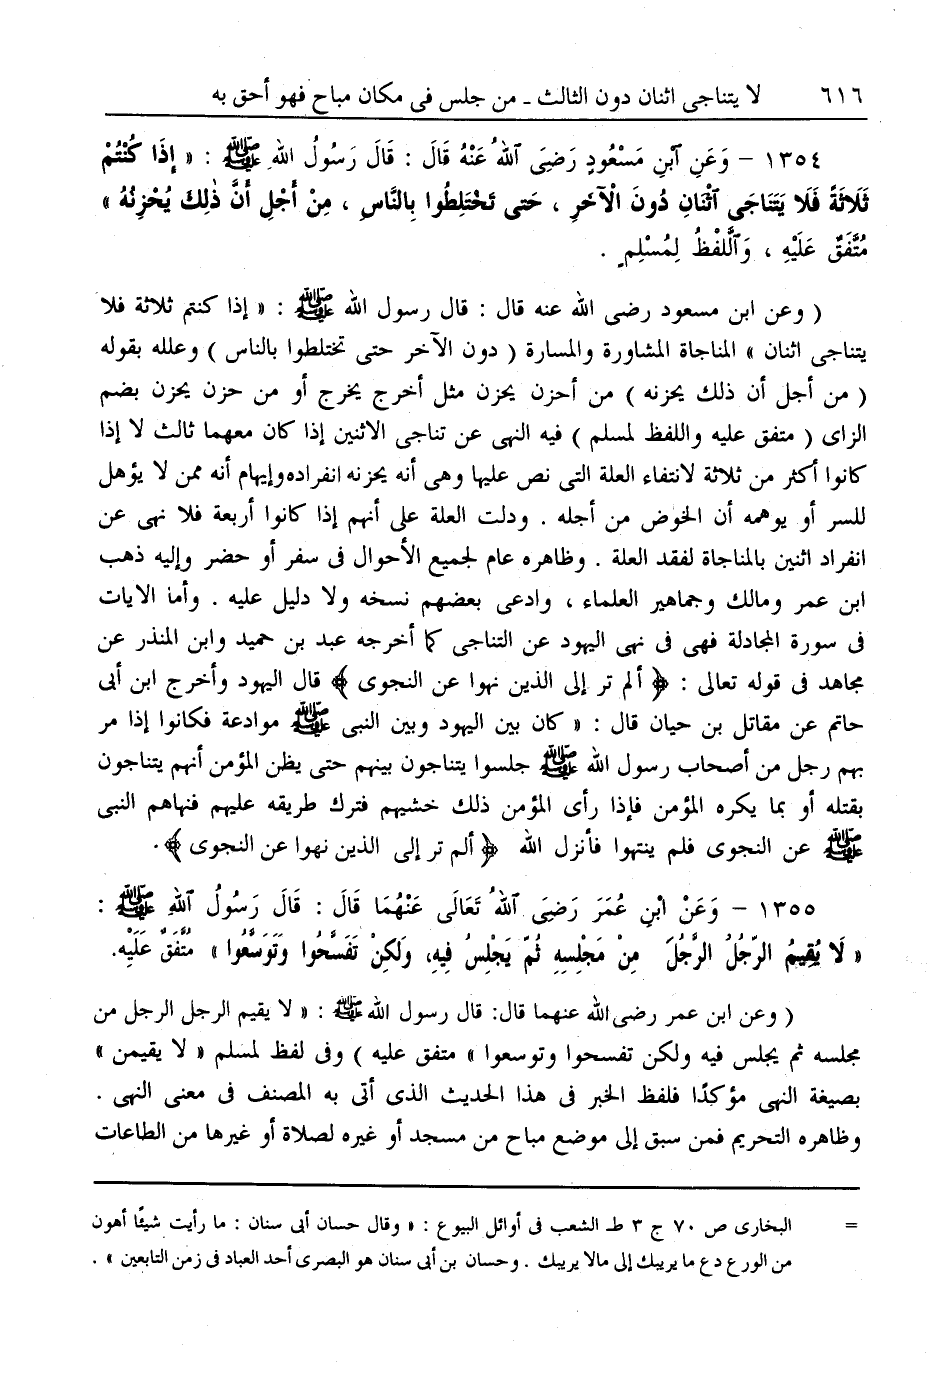 ٦١٦ لا يتناجى اثنان دون الثالث ـ من جلس فى مكان مباح فهو أحق به
١٣٥٤ – وَعَنِ ٱبْنِ مَسْعُودٍ رَضِىَ ٱللهُ عَنْهُ قَالَ : قَالَ رَسُولُ ٱللهِ ﷺ : « إِذَا كُنْتُمْ
ثَلَاثَةً فَلَا يَتَنَاجَى ٱثْنَانِ دُونَ الْآخَرِ ، حَتى تَخْتَلِطُوا بِالنَّاسِ ، مِنْ أَجْلِ أَنَّ ذٰلِكَ يُحْزِنُهُ »
مُتَّفَقٌ عَلَيْهِ ، وَٱللَّفْظُ لِمُسْلِمٍ .
( وعن ابن مسعود رضى الله عنه قال : قال رسول الله ﷺ : « إذا كنتم ثلاثة فلا
يتناجى اثنان » المناجاة المشاورة والمسارة ( دون الآخر حتى تختلطوا بالناس ) وعلله بقوله
( من أجل أن ذلك يحزنه ) من أحزن يحزن مثل أخرج يخرج أو من حزن يحزن بضم
الزاى ( متفق عليه واللفظ لمسلم ) فيه النهى عن تناجى الاثنين إذا كان معهما ثالث لا إذا
كانوا أكثر من ثلاثة لانتفاء العلة التى نص عليها وهى أنه يحزنه انفراده وإيهام أنه ممن لا يؤهل
للسر أو يوهمه أن الخوض من أجله . ودلت العلة على أنهم إذا كانوا أربعة فلا نهى عن
انفراد اثنين بالمناجاة لفقد العلة . وظاهره عام لجميع الأحوال فى سفر أو حضر وإليه ذهب
ابن عمر ومالك وجماهير العلماء ، وادعى بعضهم نسخه ولا دليل عليه . وأما الايات
فى سورة المجادلة فهى فى نهى اليهود عن التناجى كما أخرجه عبد بن حميد وابن المنذر عن
مجاهد فى قوله تعالى : ﴿ ألم تر إلى الذين نهوا عن النجوى ﴾ قال اليهود وأخرج ابن أبى
حاتم عن مقاتل بن حيان قال : « كان بين اليهود وبين النبى ﷺ موادعة فكانوا إذا مر
بهم رجل من أصحاب رسول الله ﷺ جلسوا يتناجون بينهم حتى يظن المؤمن أنهم يتناجون
بقتله أو بما يكره المؤمن فإذا رأى المؤمن ذلك خشيهم فترك طريقه عليهم فنهاهم النبى
ﷺ عن النجوى فلم ينتهوا فأنزل الله ﴿ ألم تر إلى الذين نهوا عن النجوى ﴾.
١٣٥٥ – وَعَنْ ابْنِ عُمَرَ رَضِىَ ٱللهُ تَعَالَى عَنْهُمَا قَالَ : قَالَ رَسُولُ ٱللهِ ﷺ :
« لَا يُقِيمُ الرّجُلُ الرَّجُلَ مِنْ مَجْلِسِهِ ثُمّ يَجْلِسُ فِيهِ، وَلٰكِنْ تَفَسَّحُوا وَتَوَسَّعُوا » مُتَّفَقٌ عَلَيْهِ.
( وعن ابن عمر رضى الله عنهما قال: قال رسول الله ﷺ : « لا يقيم الرجل الرجل من
مجلسه ثم يجلس فيه ولكن تفسحوا وتوسعوا » متفق عليه ) وفى لفظ لمسلم « لا يقيمن »
بصيغة النهى مؤكدًا فلفظ الخبر فى هذا الحديث الذى أتى به المصنف فى معنى النهى .
وظاهره التحريم فمن سبق إلى موضع مباح من مسجد أو غيره لصلاة أو غيرها من الطاعات
= البخارى ص ٧٠ ج ٣ طـ الشعب فى أوائل البيوع : « وقال حسان أبى سنان : ما رأيت شيئًا أهون
من الورع دع ما يريبك إلى مالا يريبك . وحسان بن أبى سنان هو البصرى أحد العباد فى زمن التابعين » .